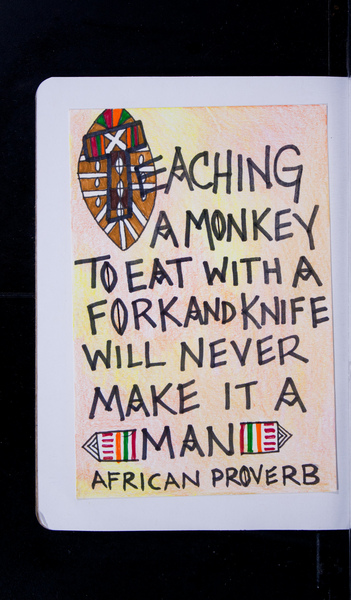 TEACHING
A MONKEY
TO EAT WITH A
FORK AND KNIFE
WILL NEVER
MAKE IT A
MAN
AFRICAN PROVERB